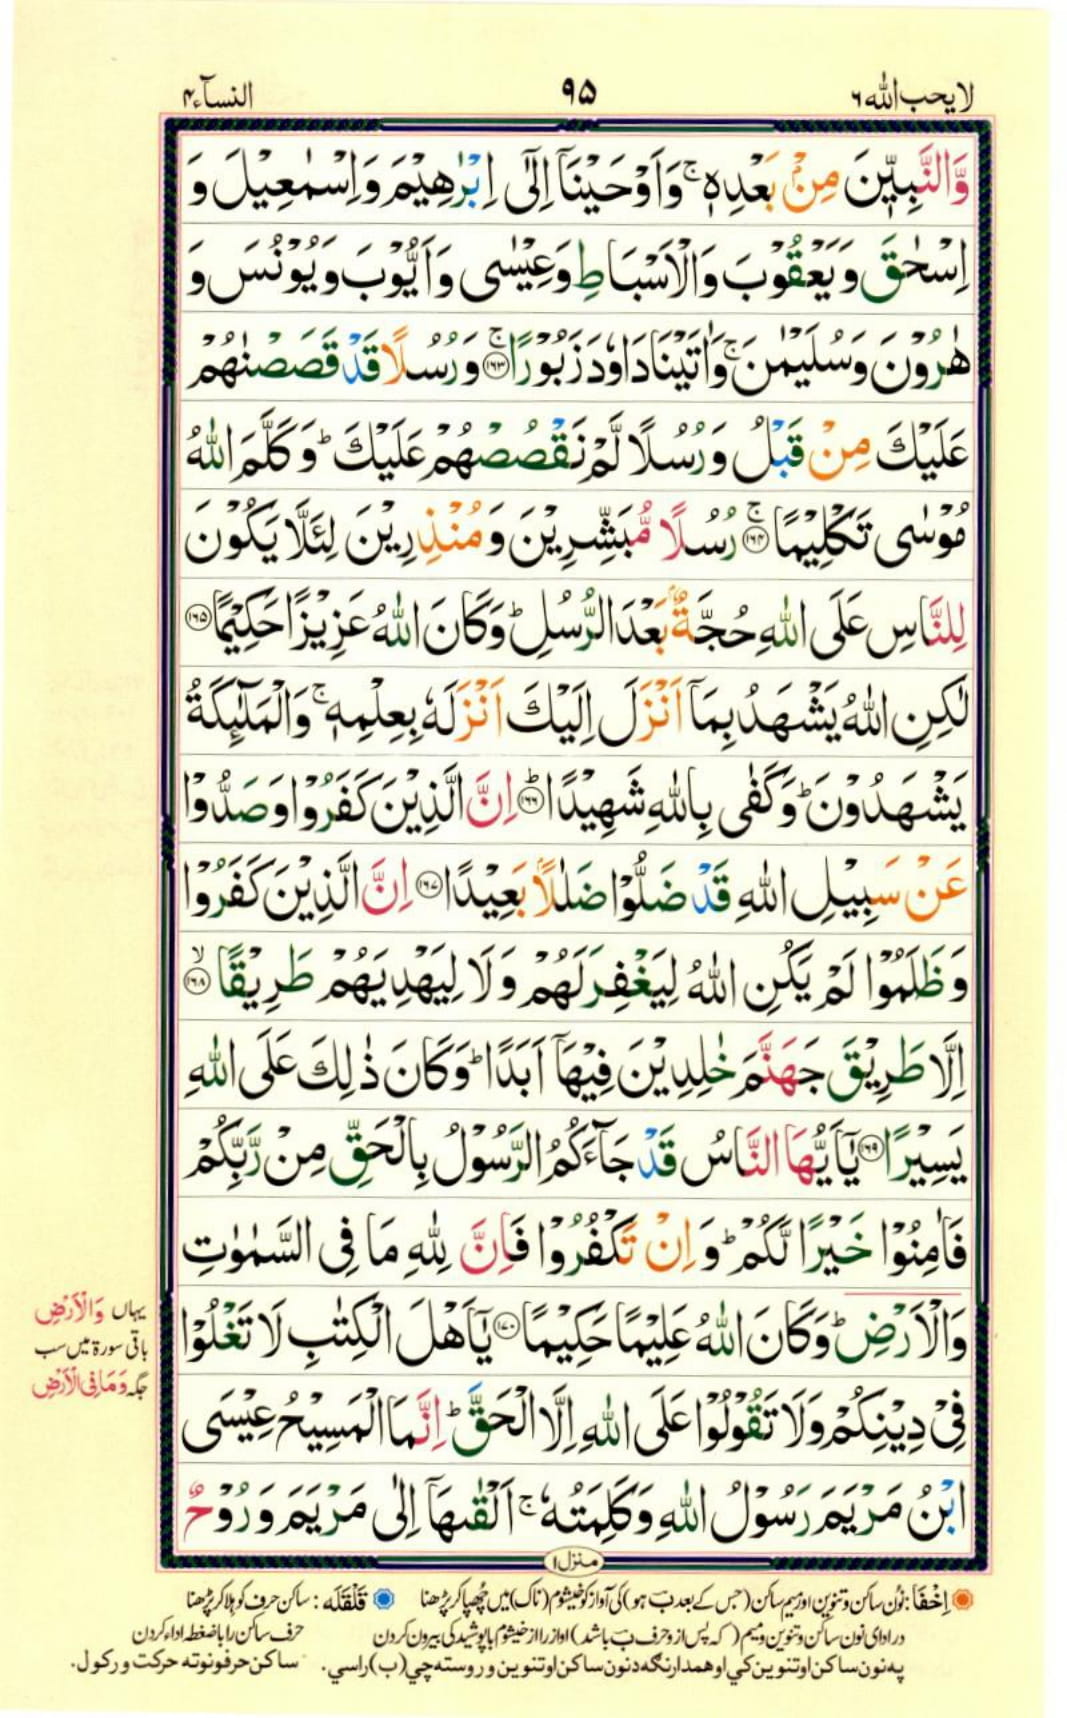 لا یحب الله ۶
۹۵
النسآء ۴
وَالنَّبِيّٖنَ مِنْۢ بَعْدِهٖ ۚ وَاَوْحَيْنَآ اِلٰٓى اِبْرٰهِيْمَ وَاِسْمٰعِيْلَ وَ
اِسْحٰقَ وَيَعْقُوْبَ وَالْاَسْبَاطِ وَعِيْسٰى وَاَيُّوْبَ وَيُوْنُسَ وَ
هٰرُوْنَ وَسُلَيْمٰنَ ۚ وَاٰتَيْنَا دَاوٗدَ زَبُوْرًا ۚ‏﴿۱۶۳﴾ وَرُسُلًا قَدْ قَصَصْنٰهُمْ
عَلَيْكَ مِنْ قَبْلُ وَرُسُلًا لَّمْ نَقْصُصْهُمْ عَلَيْكَ ؕ وَكَلَّمَ اللّٰهُ
مُوْسٰى تَكْلِيْمًا ۚ‏﴿۱۶۴﴾ رُسُلًا مُّبَشِّرِيْنَ وَمُنْذِرِيْنَ لِئَلَّا يَكُوْنَ
لِلنَّاسِ عَلَى اللّٰهِ حُجَّةٌۢ بَعْدَ الرُّسُلِ ؕ وَكَانَ اللّٰهُ عَزِيْزًا حَكِيْمًا ﴿۱۶۵﴾
لٰكِنِ اللّٰهُ يَشْهَدُ بِمَآ اَنْزَلَ اِلَيْكَ اَنْزَلَهٗ بِعِلْمِهٖ ۚ وَالْمَلٰٓئِكَةُ
يَشْهَدُوْنَ ؕ وَكَفٰى بِاللّٰهِ شَهِيْدًا ؕ‏﴿۱۶۶﴾ اِنَّ الَّذِيْنَ كَفَرُوْا وَصَدُّوْا
عَنْ سَبِيْلِ اللّٰهِ قَدْ ضَلُّوْا ضَلٰلًاۢ بَعِيْدًا ﴿۱۶۷﴾ اِنَّ الَّذِيْنَ كَفَرُوْا
وَظَلَمُوْا لَمْ يَكُنِ اللّٰهُ لِيَغْفِرَ لَهُمْ وَلَا لِيَهْدِيَهُمْ طَرِيْقًا ۙ‏﴿۱۶۸﴾
اِلَّا طَرِيْقَ جَهَنَّمَ خٰلِدِيْنَ فِيْهَآ اَبَدًا ؕ وَكَانَ ذٰلِكَ عَلَى اللّٰهِ
يَسِيْرًا ﴿۱۶۹﴾ يٰٓاَيُّهَا النَّاسُ قَدْ جَآءَكُمُ الرَّسُوْلُ بِالْحَقِّ مِنْ رَّبِّكُمْ
فَاٰمِنُوْا خَيْرًا لَّكُمْ ؕ وَاِنْ تَكْفُرُوْا فَاِنَّ لِلّٰهِ مَا فِى السَّمٰوٰتِ
وَالْاَرْضِ ؕ وَكَانَ اللّٰهُ عَلِيْمًا حَكِيْمًا ﴿۱۷۰﴾ يٰٓاَهْلَ الْكِتٰبِ لَا تَغْلُوْا
فِيْ دِيْنِكُمْ وَلَا تَقُوْلُوْا عَلَى اللّٰهِ اِلَّا الْحَقَّ ؕ اِنَّمَا الْمَسِيْحُ عِيْسَى
ابْنُ مَرْيَمَ رَسُوْلُ اللّٰهِ وَكَلِمَتُهٗ ۚ اَلْقٰىهَآ اِلٰى مَرْيَمَ وَرُوْحٌ
یہاں وَالْاَرْضِ
باقی سورۃ میں سب
جگہ وَمَا فِی الْاَرْضِ
منزل ۱
اِخْفَا: نُون ساکن و تنوین اور میم ساکن (جس کے بعد ب ہو) کی آواز کو خیشوم (ناک) میں چُھپا کر پڑھنا قَلْقَلَه: ساکن حرف کو ہلا کر پڑھنا
در ادای نون ساکن و تنوین و میم (که پس از و حرف ب باشد) اواز را از خیشوم با پوشیدگی بیرون کردن حرف ساکن را با ضغطه اداء کردن
په نون ساکن او تنوین کي او همدارنګه د نون ساکن او تنوین وروسته چي (ب) راسي. ساکن حرفونو ته حرکت ورکول.